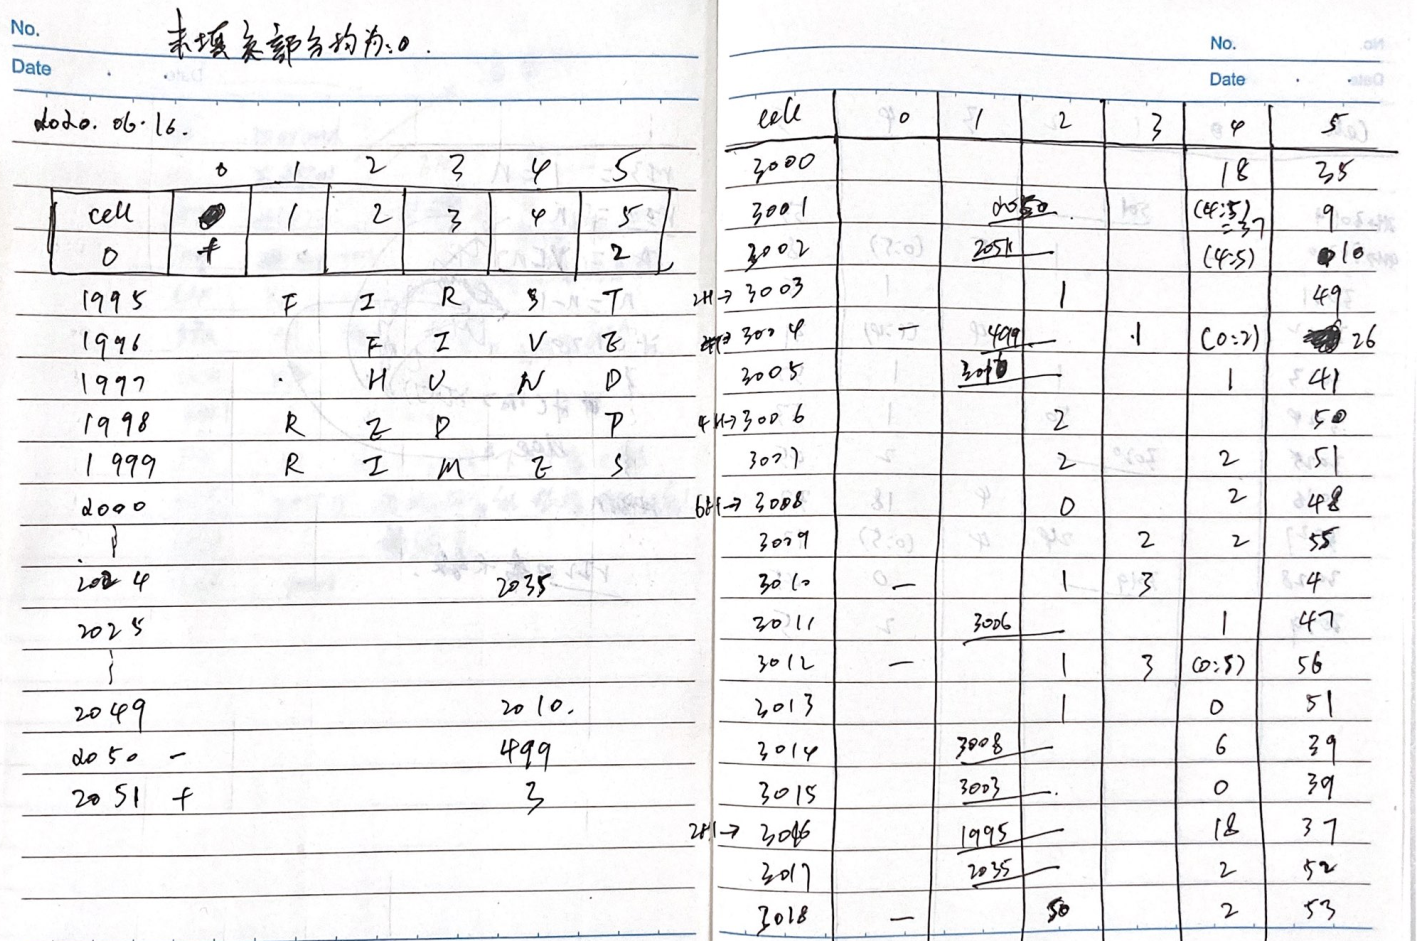 No.
未填充部分均为: 0.
Date
2020. 06. 16.
0 1 2 3 4 5
cell 1 2 3 4 5
0 + 2
1995 F I R S T
1996 F I V E
1997 . H U N D
1998 R E D P
1999 R I M E S
2000
2024 2035
2025
2049 2010.
2050 - 499
2051 + 3
No.
Date
cell 0 1 2 3 4 5
3000 18 35
3001 2050 (4:5) = 37 9
3002 2051 (4:5) 10
2H→ 3003 1 49
3004 - 499 1 (0:2) 26
3005 3016 1 41
4H→ 3006 2 50
3007 2 2 51
6H→ 3008 0 2 48
3009 2 2 55
3010 - 1 3 4
3011 3006 1 47
3012 - 1 3 (0:5) 56
3013 1 0 51
3014 3008 6 39
3015 3003 . 0 39
2H→ 3016 1995 18 37
3017 2035 2 52
3018 - 50 2 53